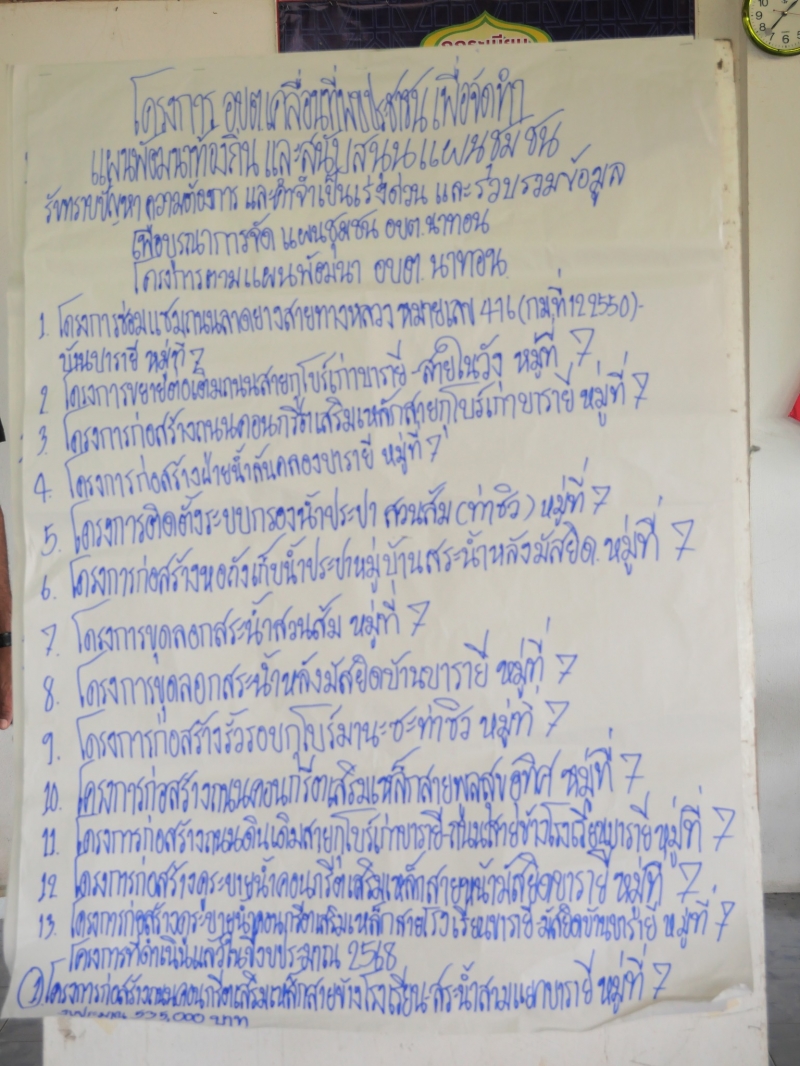 โครงการ อบต.เคลื่อนที่พบประชาชน เพื่อจัดทำ
แผนพัฒนาท้องถิ่น และสนับสนุนแผนชุมชน
รับทราบปัญหา ความต้องการ และความจำเป็นเร่งด่วน และรวบรวมข้อมูล
เพื่อบูรณาการจัด แผนชุมชน อบต. นาทอน
โครงการตามแผนพัฒนา อบต. นาทอน.
1. โครงการซ่อมแซมถนนลาดยางสายทางหลวง หมายเลข 416 (กม.ที่ 122550)-
บ้านบารายี หมู่ที่ 7
2. โครงการขยายต่อเติมถนนสายกูโบร์เก่าบารายี - สายในวัง หมู่ที่ 7
3. โครงการก่อสร้างถนนคอนกรีตเสริมเหล็กสายกูโบร์เก่าบารายี หมู่ที่ 7
4. โครงการก่อสร้างฝ่ายน้ำล้นคลองบารายี หมู่ที่ 7
5. โครงการติดตั้งระบบกรองน้ำประปา สวนส้ม (ท่าชิว) หมู่ที่ 7
6. โครงการก่อสร้างหอถังเก็บน้ำประปาหมู่บ้านสระน้ำหลังมัสยิด. หมู่ที่ 7
7. โครงการขุดลอกสระน้ำสวนส้ม หมู่ที่ 7
8. โครงการขุดลอกสระน้ำหลังมัสยิดบ้านบารายี หมู่ที่ 7
9. โครงการก่อสร้างรั้วรอบกูโบร์มานะชะท่าชิว หมู่ที่ 7
10. โครงการก่อสร้างถนนคอนกรีตเสริมเหล็กสายพูลสุขอุทิศ หมู่ที่ 7
11. โครงการก่อสร้างถนนดินเดิมสายกูโบร์เก่าบารายี-ถนนสายข้างโรงเรียนบารายี หมู่ที่ 7
12. โครงการก่อสร้างคูระบายน้ำคอนกรีตเสริมเหล็กสายหน้ามัสยิดบารายี หมู่ที่ 7
13. โครงการก่อสร้างคูระบายน้ำคอนกรีตเสริมเหล็กสายโรงเรียนบารายี-มัสยิดบ้านบารายี หมู่ที่ 7
โครงการที่ดำเนินแล้วในปีงบประมาณ 2568
① โครงการก่อสร้างถนนคอนกรีตเสริมเหล็กสายข้างโรงเรียน-สระน้ำสามแยกบารายี หมู่ที่ 7
งบประมาณ 535,000 บาท